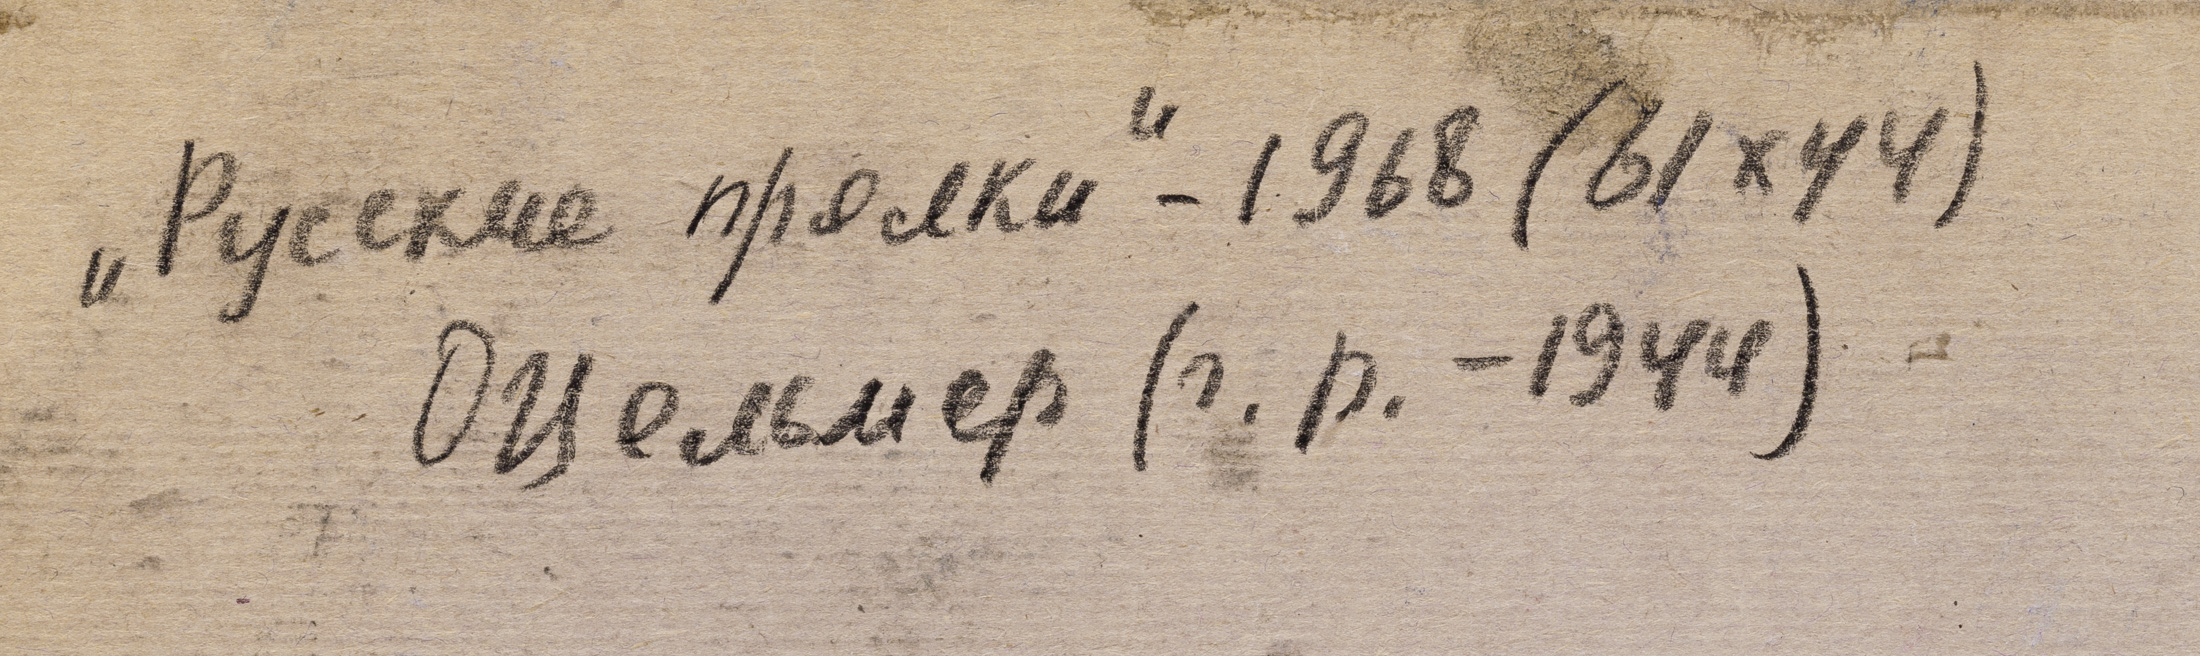 „Русские прялки“ - 1968 (61х44)
ОЦельмер (г. р. - 1944)